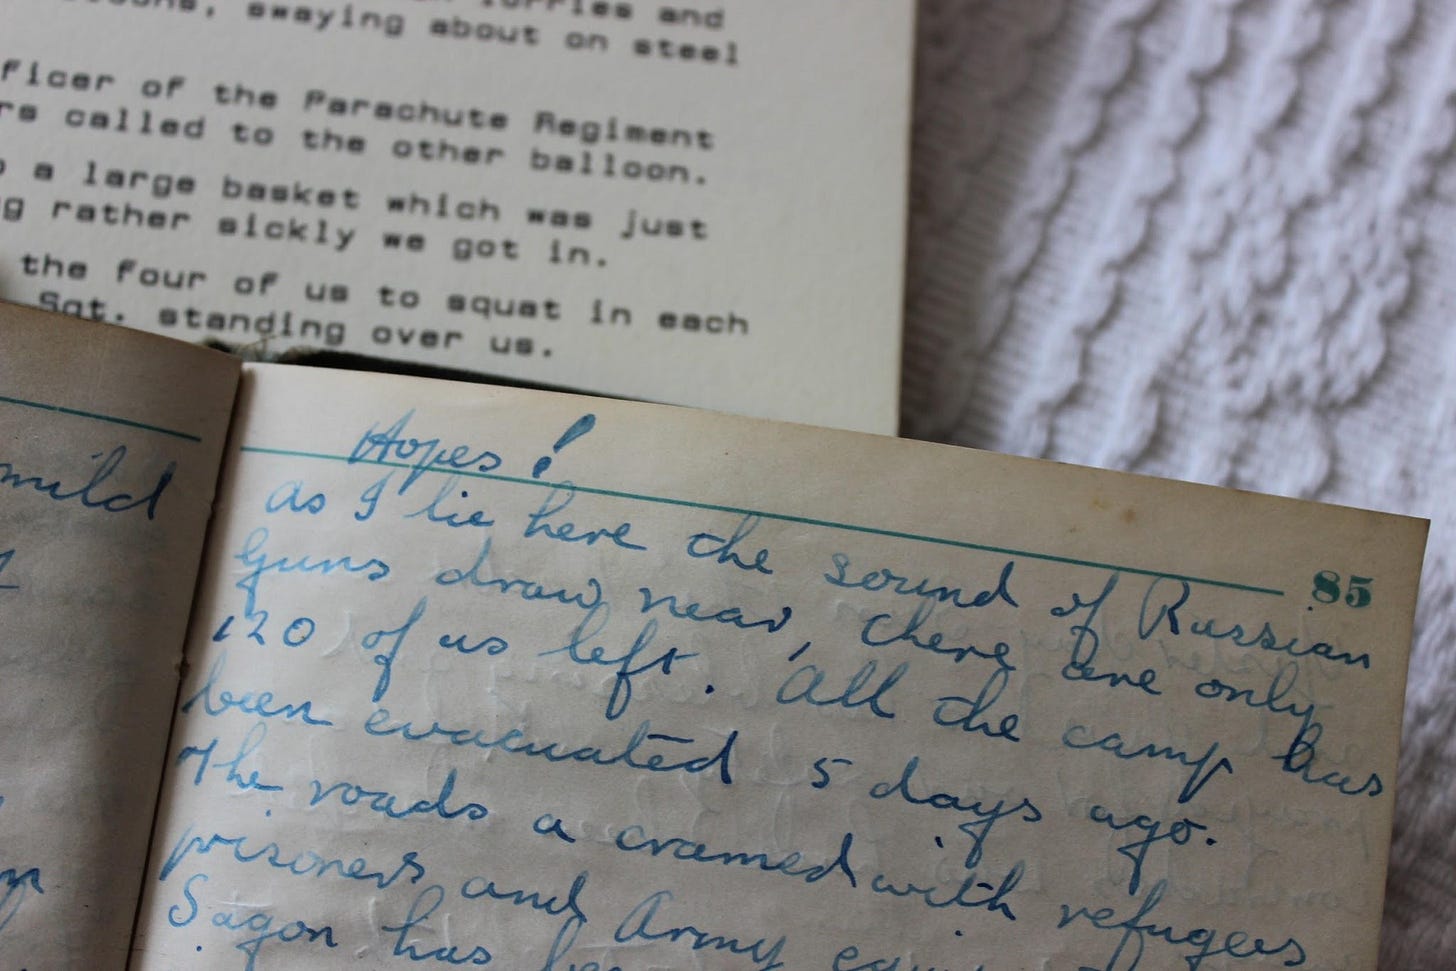 lorries and
swaying about on steel
ficer of the Parachute Regiment
rs called to the other balloon.
a large basket which was just
g rather sickly we got in.
the four of us to squat in each
Sgt. standing over us.
mild
Hopes!
85
as I lie here the sound of Russian
Guns draw near, there are only
120 of us left. All the camp has
been evacuated 5 days ago.
The roads a cramed with refugees
prisoners and Army
Sagon has